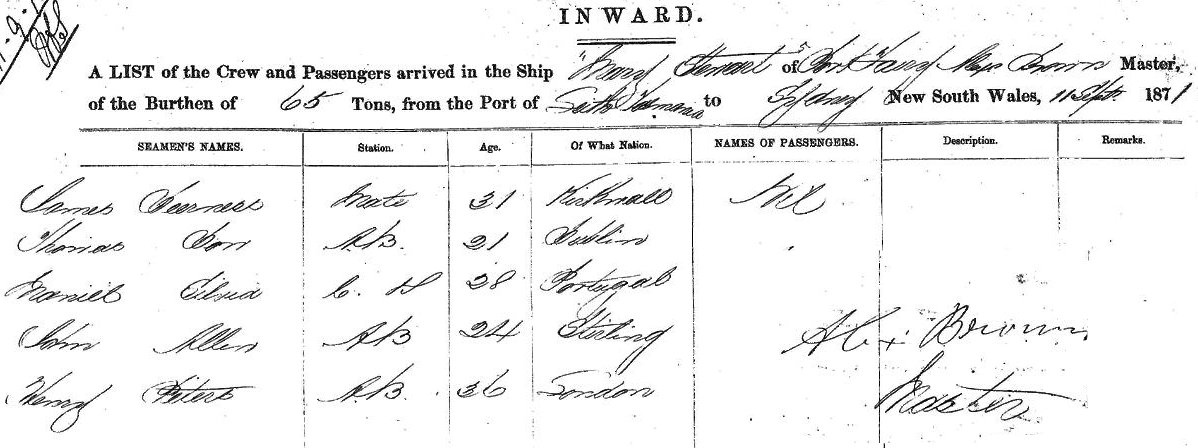 INWARD.
A LIST of the Crew and Passengers arrived in the Ship "Mary Stewart" of Alex Brown Master,
of the Burthen of 65 Tons, from the Port of to Sydney New South Wales, 11 Sept. 1871
SEAMEN'S NAMES. Station. Age. Of What Nation. NAMES OF PASSENGERS. Description. Remarks.
James Mate 31 Kirkwall Nil
Thomas A.B. 21 Dublin
28 Portugal
John Allen AB 24 Stirling
Alex. Brown
Henry Peters A.B. 36 London
Master